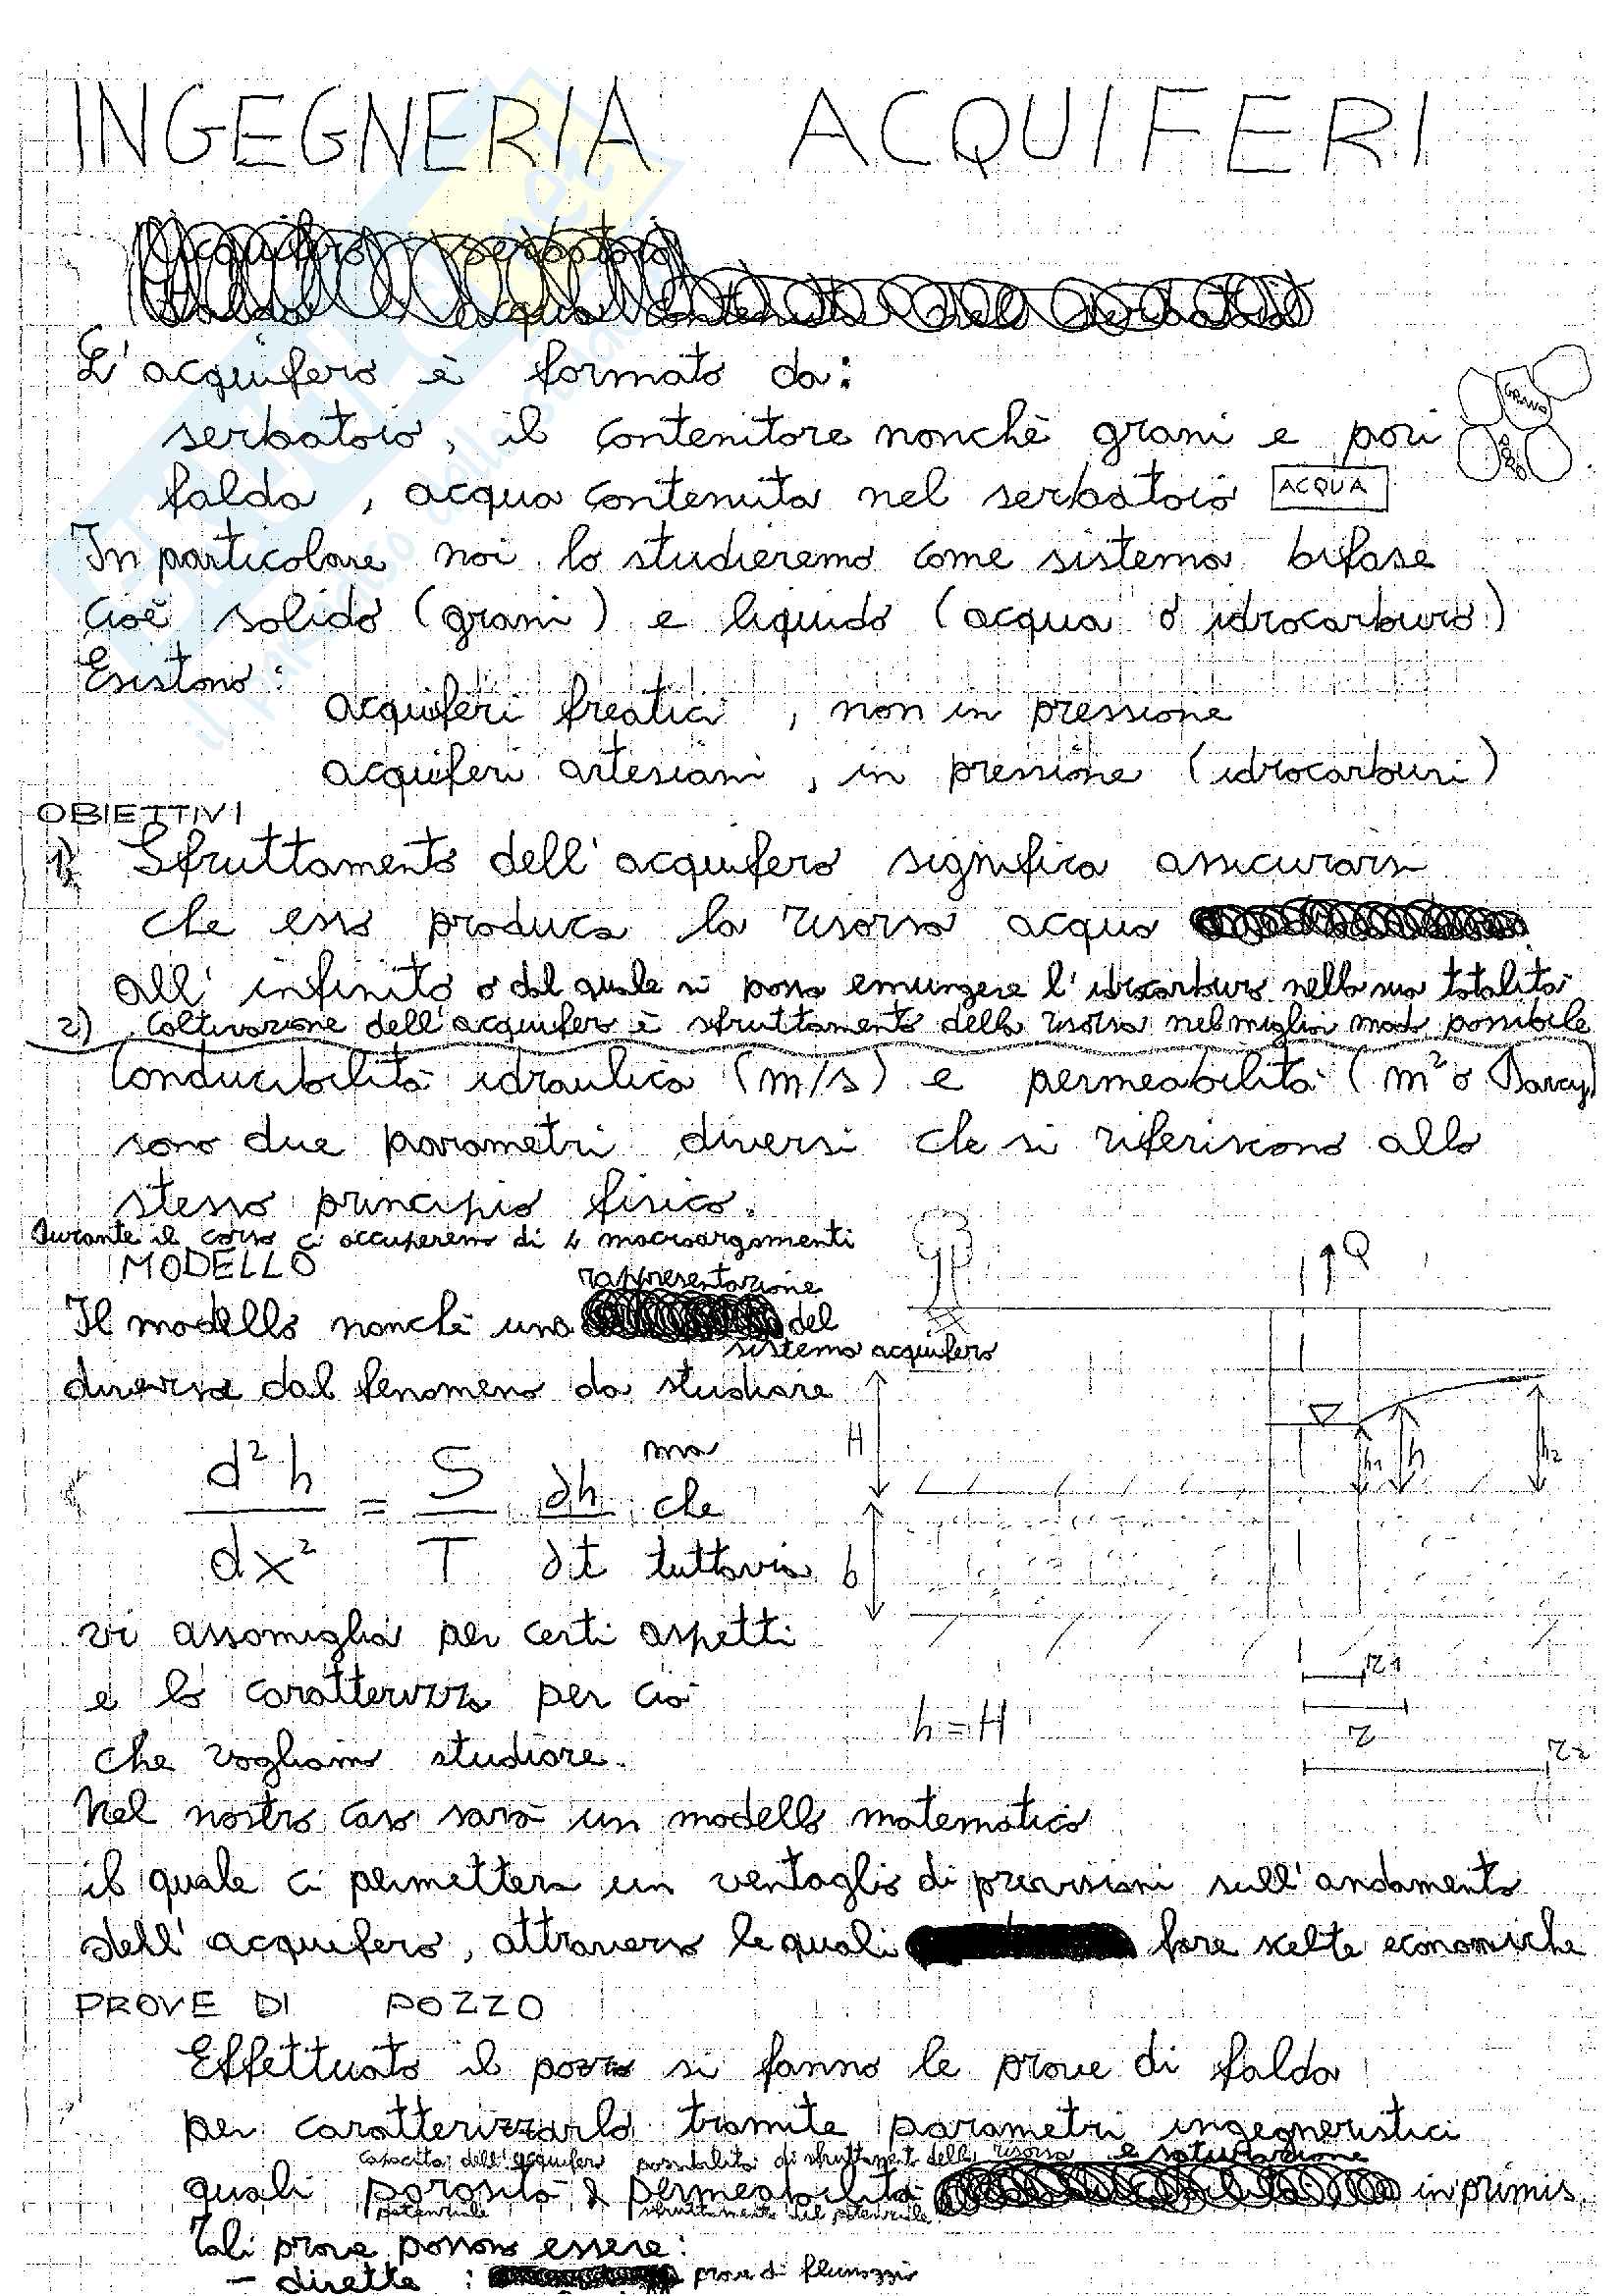 INGEGNERIA ACQUIFERI
L'acquifero è formato da:
serbatoio, il contenitore nonchè grani e pori
GRANO
falda, acqua contenuta nel serbatoio ACQUA
In particolare noi lo studieremo come sistema bifase
cioè solido (grani) e liquido (acqua o idrocarburo)
Esistono:
acquiferi freatici, non in pressione
acquiferi artesiani, in pressione (idrocarburi)
OBIETTIVI
1) Sfruttamento dell'acquifero significa assicurarsi
che esso produca la risorsa acqua
all'infinito o dal quale si possa emungere l'idrocarburo nella sua totalità
2) Coltivazione dell'acquifero è sfruttamento della risorsa nel miglior modo possibile
Conducibilità idraulica (m/s) e permeabilità (m² o Darcy)
sono due parametri diversi che si riferiscono allo
stesso principio fisico.
Durante il corso ci occuperemo di 4 macroargomenti
MODELLO
Il modello nonchè una rappresentazione del
sistema acquifero
diversa dal fenomeno da studiare
d²h/dx² = S/T ∂h/∂t ma che tuttavia
vi assomiglia per certi aspetti
e lo caratterizza per ciò
che vogliamo studiare.
Q
H
b
h1 h h2
r1
r
r2
h = H
Nel nostro caso sarà un modello matematico
il quale ci permetterà un ventaglio di previsioni sull'andamento
dell'acquifero, attraverso le quali fare scelte economiche
PROVE DI POZZO
Effettuato il pozzo si fanno le prove di falda
per caratterizzarlo tramite parametri ingegneristici
capacità dell'acquifero possibilità di sfruttamento della risorsa e saturazione
quali porosità & permeabilità in primis.
potenziale sfruttamento del potenziale
Tali prove possono essere:
- dirette : prove di flussaggio